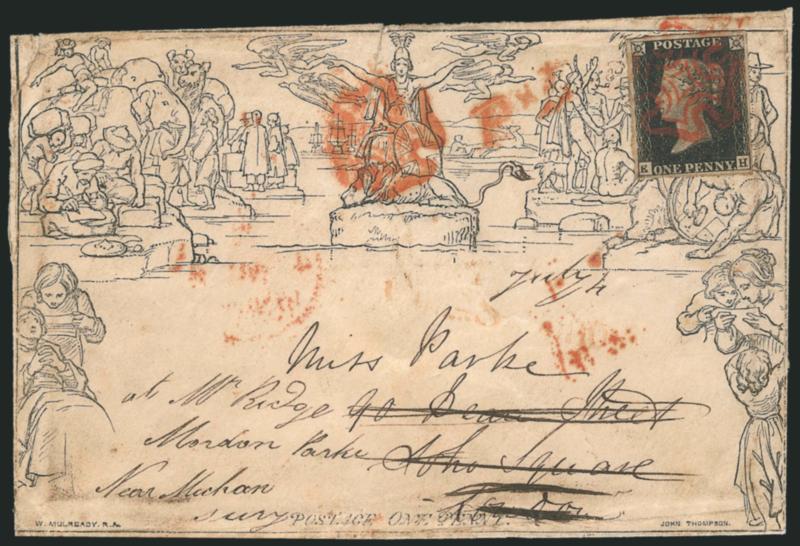 POSTAGE
ONE PENNY
K H
Paid
July 4
Miss Parke
at Mr Ridge 90 Dean Street
Mordon Parke Soho Square
Near Micham London
Surry POSTAGE ONE PENNY.
W. MULREADY. R.A.
JOHN THOMPSON.